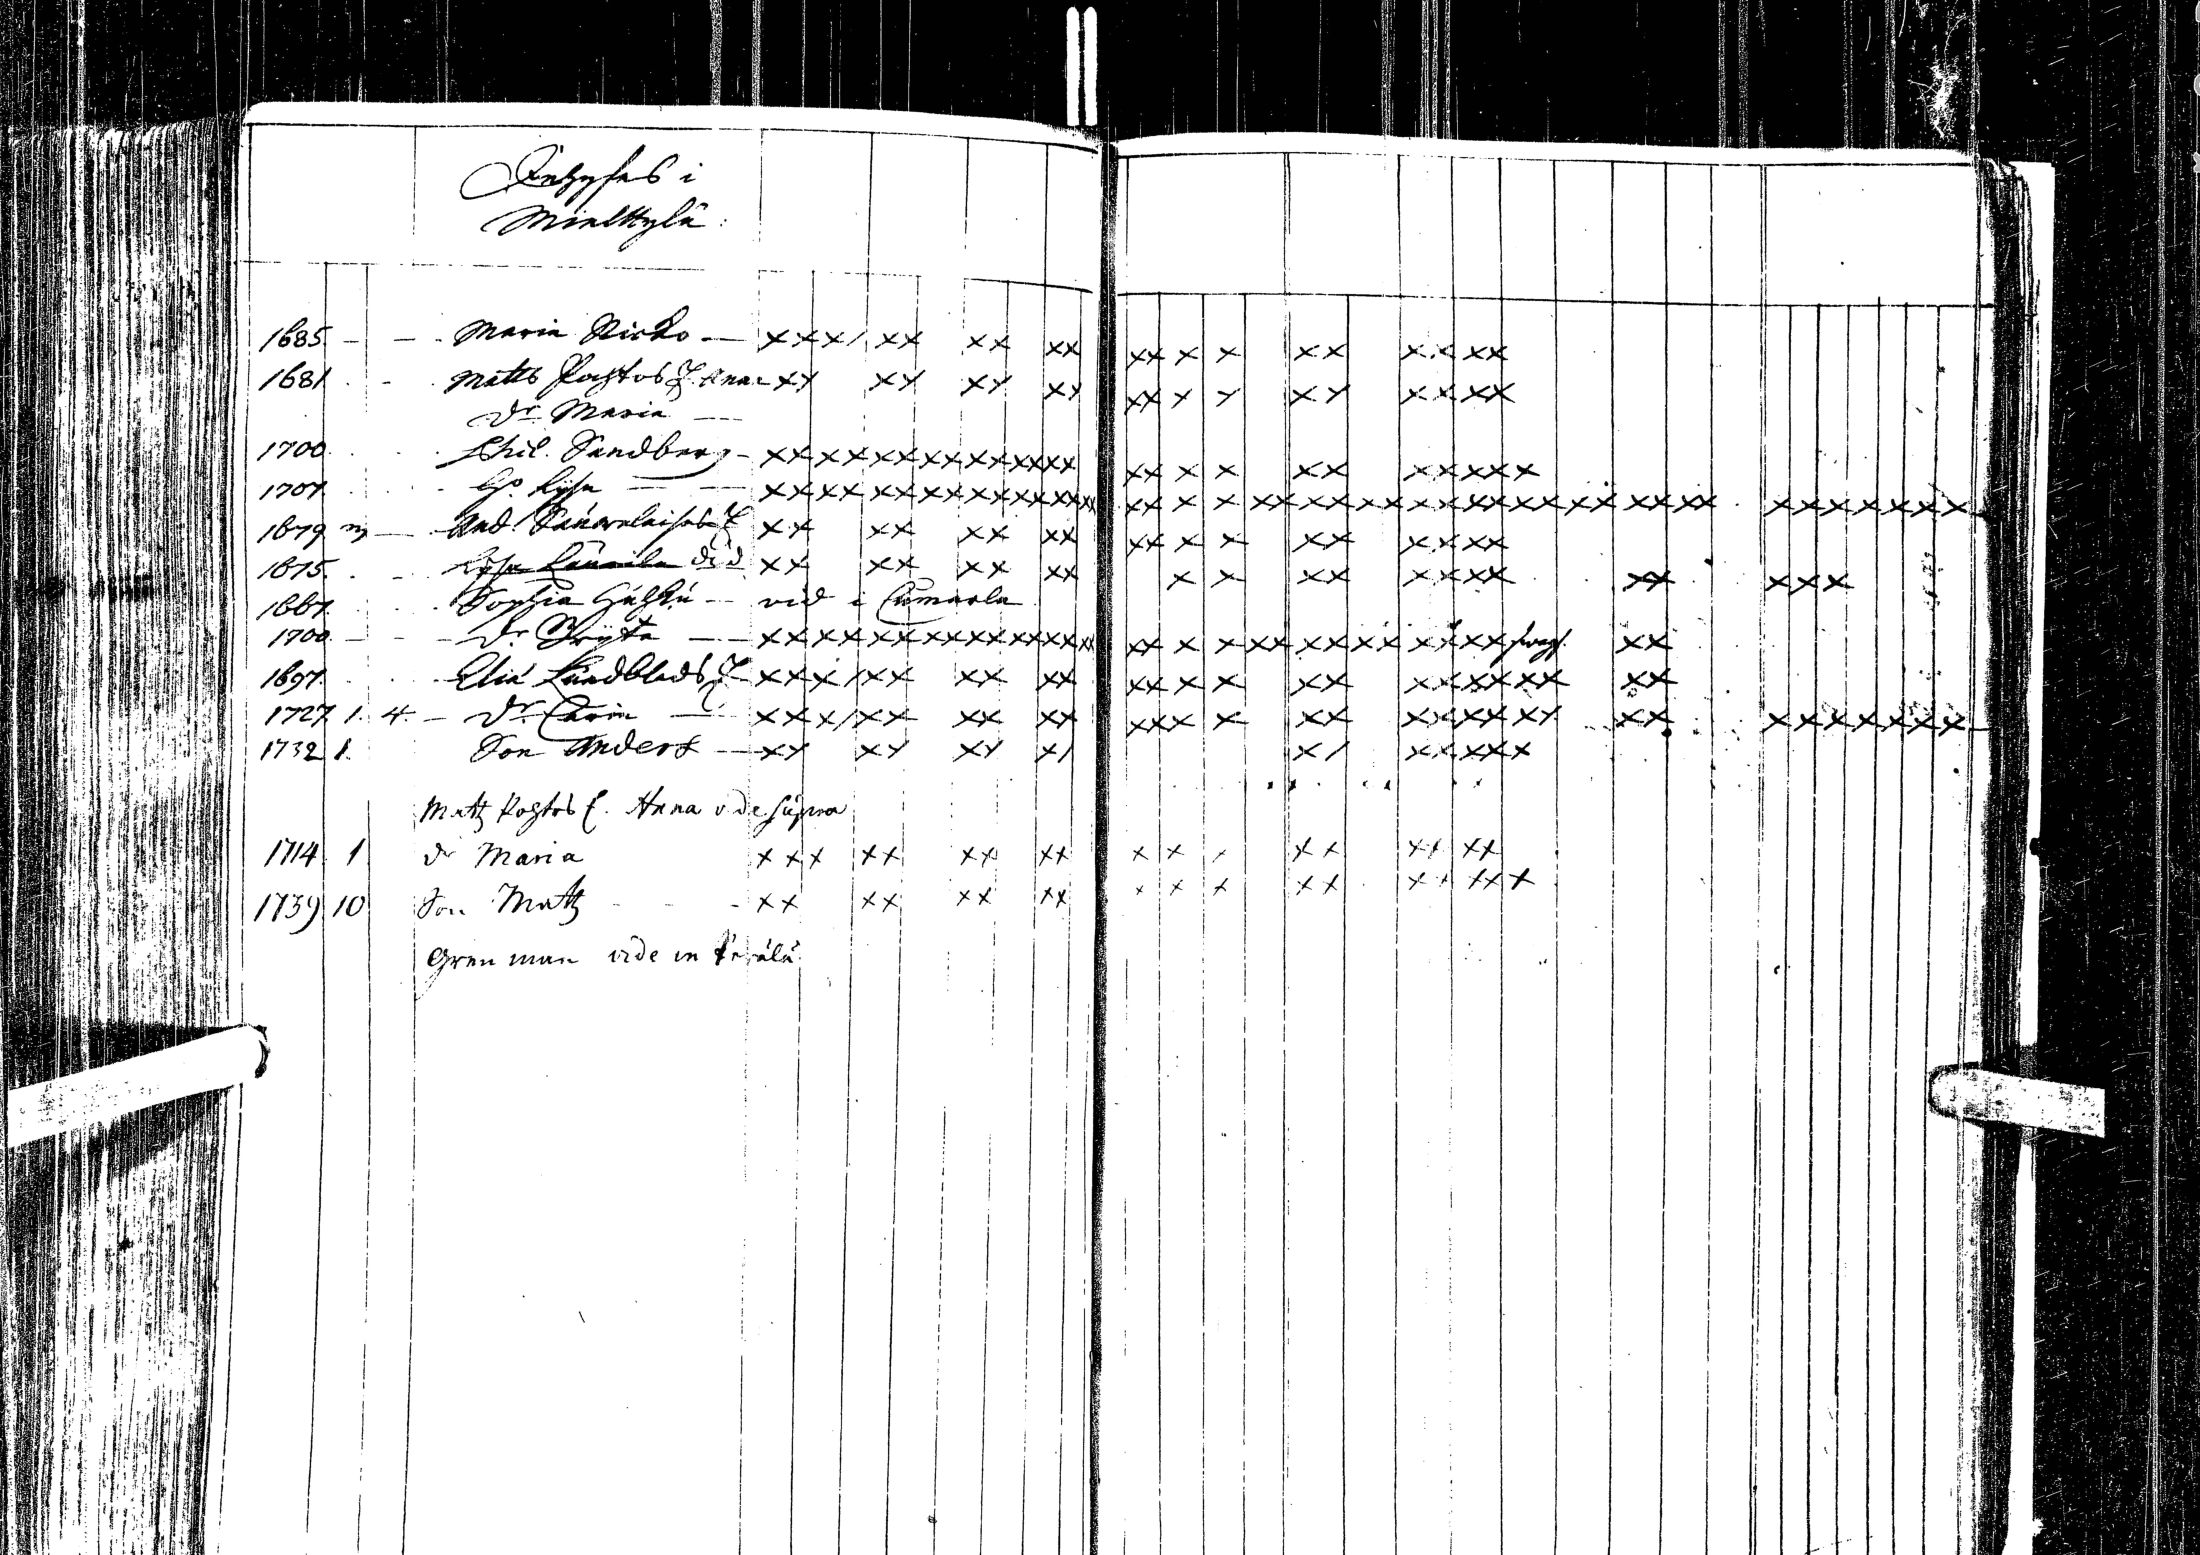 Inhyses i
Mielkylä:
1685 Maria Sicko xxx/ xx xx xx xx x x xx xx xx
1681 Matts Pohtos E. Anna xx xx xx xx xx x x xx xx xx
Dr. Maria
1700 Phil. Sandberg xx xx xx xx xx xx xx xx x x xx xx xxx
1707 H. Lisa xx xx xx xx xx xx xx xx x x xx xx xx xx xx xx xx xx xx xxxxxxxx
1679 And. xx xx xx xx xx x x xx xx xx
1675 Lisa xx xx xx xx x x xx xx xx xx xxx
1667 Sophia vid i Cumarla
1700 Dr. xx xx xx xx xx xx xx xx x x xx xx xx xx xx xx
1697 Elia Lundblads E xxx/ xx xx xx xx x x xx xx xx xx xx
1727 1. 4. Dr. Carin xxx/ xx xx xx xxx x xx xx xx xx xx xxxxxxxx
1732 1. Son Anders xx xx xx x/ x/ xx xxx
Matts Pohtos E. Anna vide supra
1714 1 dr Maria xxx xx xx xx x x xx xx xx
1739 10 Son Matts xx xx xx xx x x x xx xx xxx
Grenman vide in